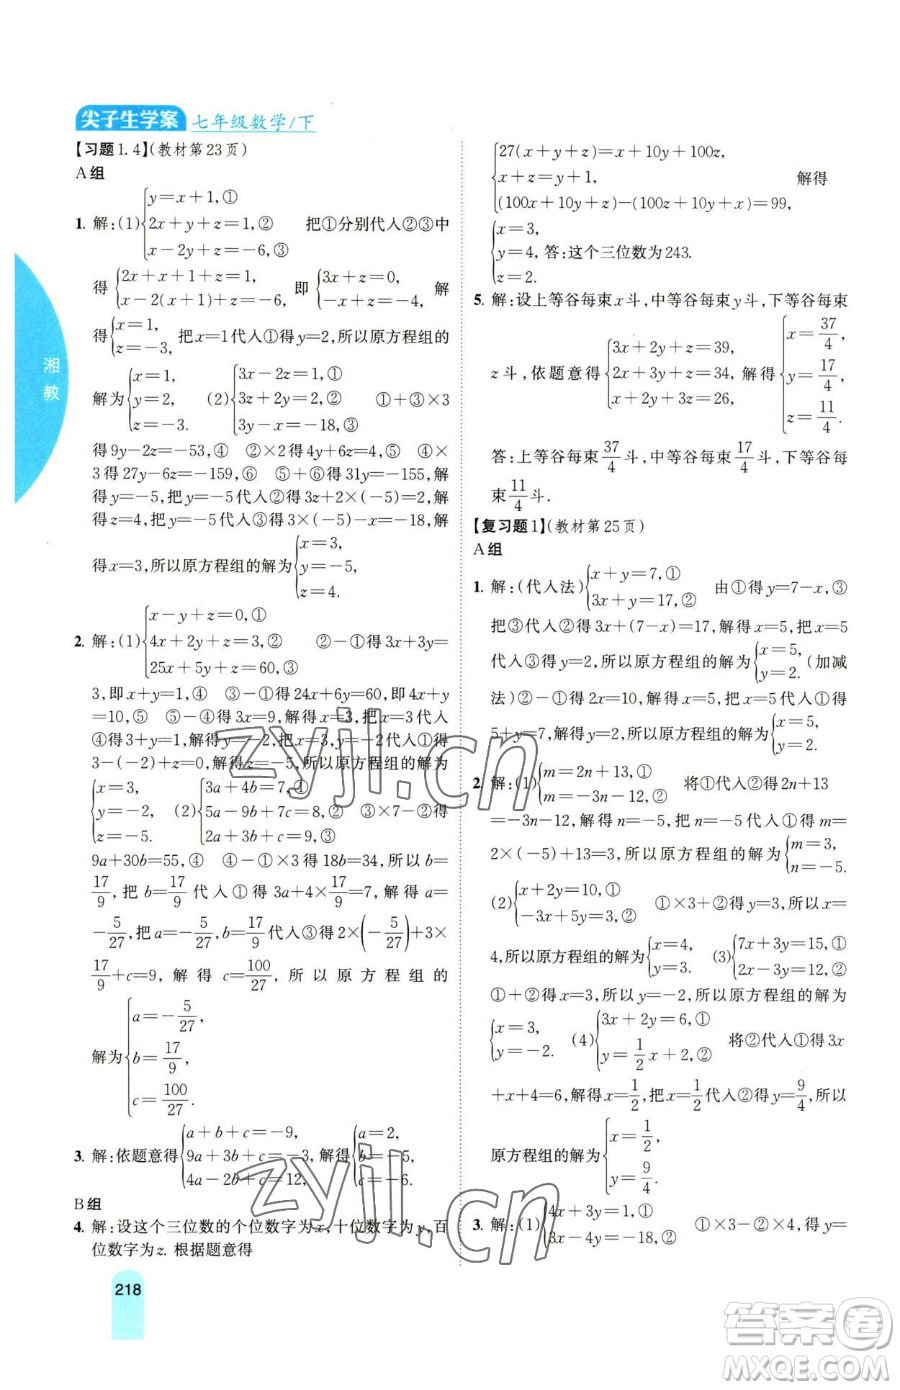 尖子生学案 七年级数学/下
【习题1.4】(教材第23页)
A组
1. 解:(1){y=x+1,① 2x+y+z=0,② x-2y+z=-6,③ 把①分别代人②③中
得{2x+x+1+z=1, x-2(x+1)+z=-6, 即{3x+z=0, -x+z=-4, 解
得{x=1, z=-3, 把x=1代人①得y=2,所以原方程组的
解为{x=1, y=2, z=-3. (2){3x-2z=1,① 3z+2y=1,② 3y-x=-18,③ ①+③×3
得9y-2z=-53,④ ②×2得4y+6z=2,⑤ ④×
3得27y-6z=-159,⑥ ⑤+⑥得31y=-155,解
得y=-5,把y=-5代人②得3z+2×(-5)=2,解
得z=4,把y=-5代人③得3×(-5)-x=-18,解
得x=3,所以原方程组的解为{x=3, y=-5, z=4.
2. 解:(1){x-y+z=0,① 4x+2y+z=3,② 25x+5y+z=60,③ ②-①得3x+3y=
3,即x+y=1,④ ③-①得24x+6y=60,即4x+y
=10,⑤ ⑤-④得3x=9,解得x=3,把x=3代人
④得3+y=1,解得y=-2,把x=3,y=-2代人①得
3-(-2)+z=0,解得z=-5,所以原方程组的解为
{x=3, y=-2, z=-5. (2){3a+4b=7,① 5a-9b+7c=8,② 2a+3b+c=9,③ ③×7-②得
9a+30b=55,④ ④-①×3得18b=34,所以b=
17/9,把b=17/9代人①得3a+4×17/9=7,解得a=
-5/27,把a=-5/27,b=17/9代人③得2×(-5/27)+3×
17/9+c=9,解得c=100/27,所以原方程组的
解为{a=-5/27, b=17/9, c=100/27.
3. 解:依题意得{a+b+c=-9, 9a+3b+c=-3, 4a-2b+c=12, 解得{a=2, b=-5, c=-6.
B组
4. 解:设这个三位数的个位数字为x,十位数字为y,百
位数字为z. 根据题意得
{27(x+y+z)=x+10y+100z, x+z=y+1, (100x+10y+z)-(100z+10y+x)=99, 解得
{x=3, y=4, z=2. 答:这个三位数为243.
5. 解:设上等谷每束x斗,中等谷每束y斗,下等谷每束
z斗,依题意得{3x+2y+z=39, 2x+3y+z=34, x+2y+3z=26, 解得{x=37/4, y=17/4, z=11/4.
答:上等谷每束37/4斗,中等谷每束17/4斗,下等谷每
束11/4斗.
【复习题1】(教材第25页)
A组
1. 解:(代人法){x+y=7,① 3x+y=17,② 由①得y=7-x,③
把③代人②得3x+(7-x)=17,解得x=5,把x=5
代人③得y=2,所以原方程组的解为{x=5, y=2. (加减
法)②-①得2x=10,解得x=5,把x=5代人①得
5+y=7,解得y=2,所以原方程组的解为{x=5, y=2.
2. 解:(1){m=2n+13,① m=-3n-12,② 将①代人②得2n+13
=-3n-12,解得n=-5,把n=-5代人①得m=
2×(-5)+13=3,所以原方程组的解为{m=3, n=-5.
(2){x+2y=10,① -3x+5y=3,② ①×3+②得y=3,所以x=
4,所以原方程组的解为{x=4, y=3. (3){7x+3y=15,① 2x-3y=12,②
①+②得x=3,所以y=-2,所以原方程组的解为
{x=3, y=-2. (4){3x+2y=6,① y=1/2x+2,② 将②代人①得3x
+x+4=6,解得x=1/2,把x=1/2代人②得y=9/4,所以
原方程组的解为{x=1/2, y=9/4.
3. 解:(1){4x+3y=1,① 3x-4y=-18,② ①×3-②×4,得
湘教
218
zyjl.cn
zyjl.cn
答案圈
MXQE.COM